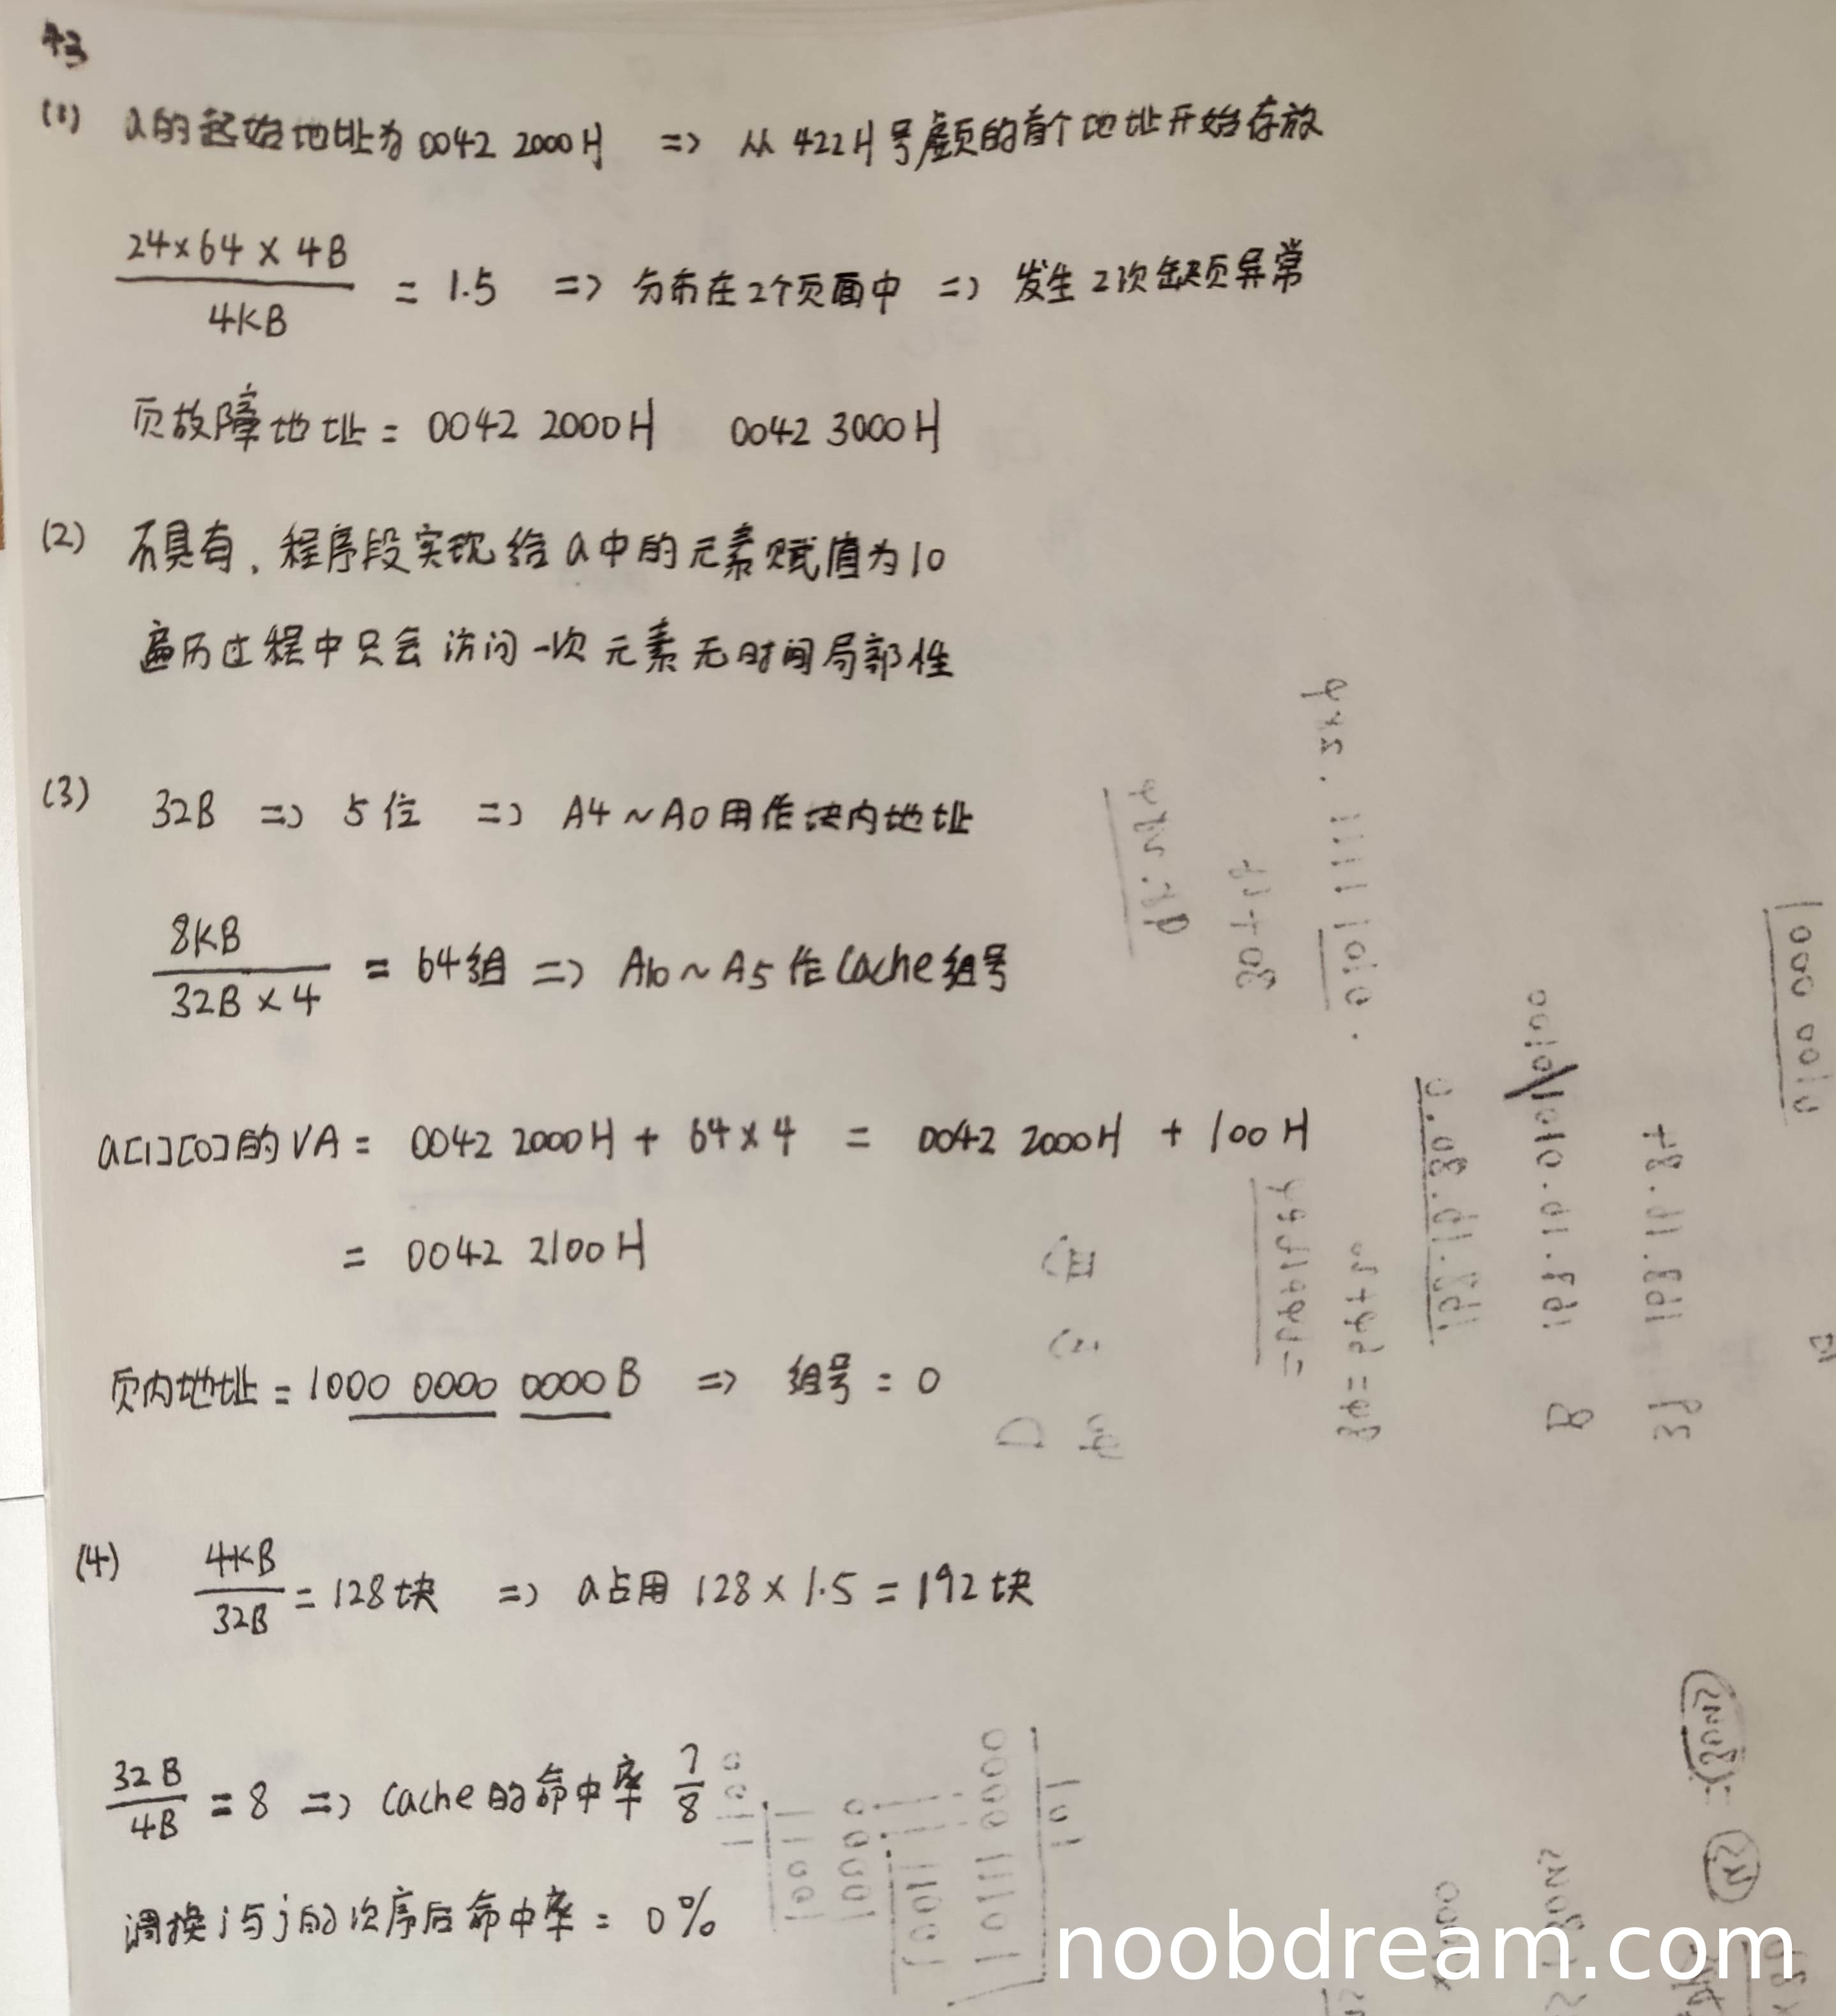 43
(1) a的起始地址为 0042 2000H => 从 422H号虚页的首个地址开始存放
24×64×4B / 4KB = 1.5 => 分布在2个页面中 => 发生2次缺页异常
页故障地址 = 0042 2000H 0042 3000H
(2) 不具有, 程序段实现给a中的元素赋值为10
遍历过程中只会访问一次元素无时间局部性
(3) 32B => 5位 => A4~A0用作块内地址
8KB / 32B×4 = 64组 => A10~A5作Cache组号
a[1][0]的VA = 0042 2000H + 64×4 = 0042 2000H + 100H
= 0042 2100H
页内地址 = 1000 0000 0000B => 组号 = 0
(4) 4KB / 32B = 128块 => a占用 128×1.5 = 192块
32B / 4B = 8 => Cache的命中率 7/8
调换i与j的次序后命中率 = 0%
noobdream.com